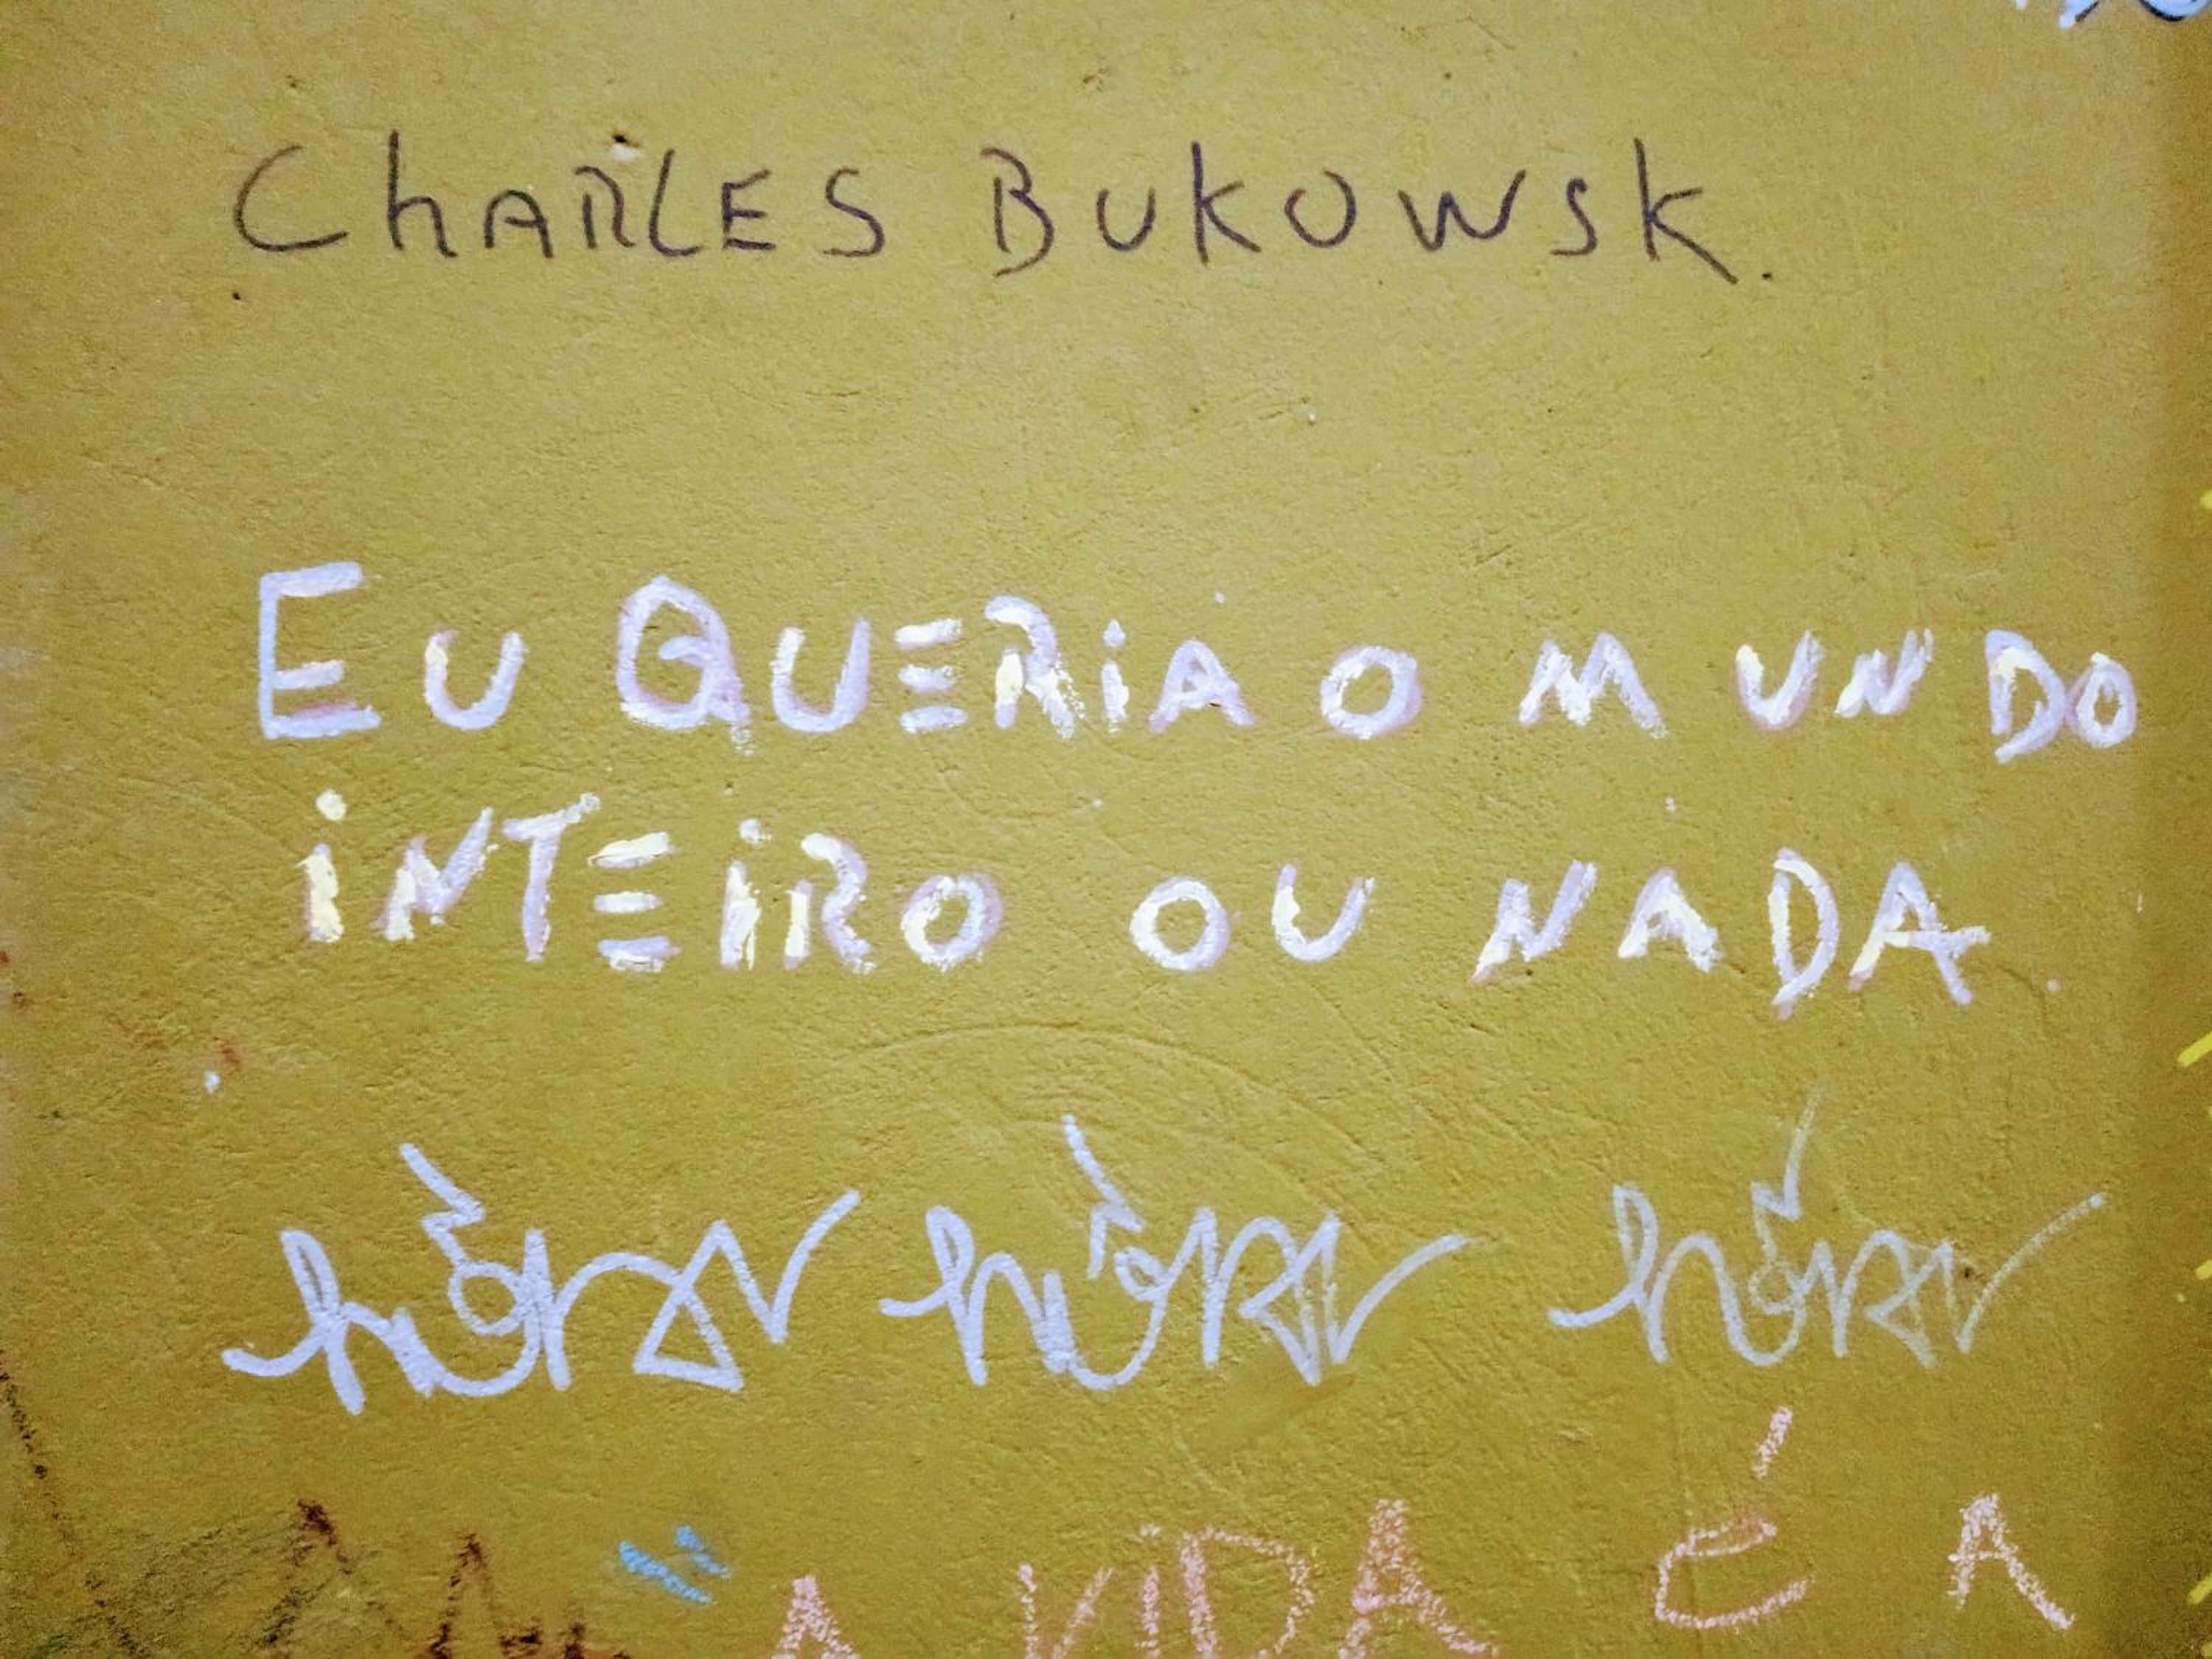 CHARLES BUKOWSK.
EU QUERIA O MUNDO
INTEIRO OU NADA
A VIDA É A